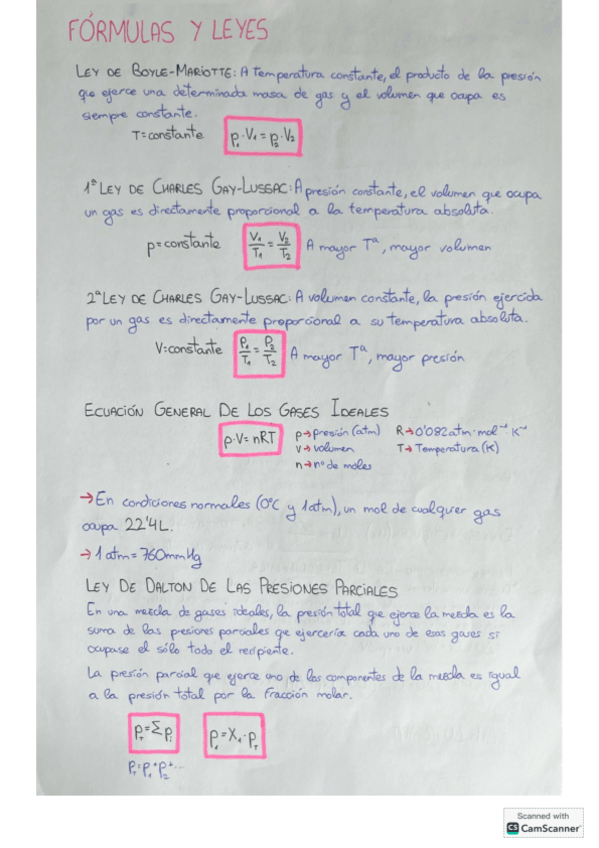 FÓRMULAS Y LEYES
LEY DE BOYLE-MARIOTTE: A Temperatura constante, el producto de la presión
que ejerce una determinada masa de gas y el volumen que ocupa es
siempre constante.
T=constante p₁·V₁=p₂·V₂
1ª LEY DE CHARLES GAY-LUSSAC: A presión constante, el volumen que ocupa
un gas es directamente proporcional a la temperatura absoluta.
p=constante V₁/T₁ = V₂/T₂ A mayor Tª, mayor volumen
2ª LEY DE CHARLES GAY-LUSSAC: A volumen constante, la presión ejercida
por un gas es directamente proporcional a su temperatura absoluta.
V=constante P₁/T₁ = P₂/T₂ A mayor Tª, mayor presión
ECUACIÓN GENERAL DE LOS GASES IDEALES
p·V=nRT p→presión (atm) R→0'082 atm·mol⁻¹ K⁻¹
V→volumen T→Temperatura (K)
n→nº de moles
→En condiciones normales (0ºC y 1atm), un mol de cualquier gas
ocupa 22'4L.
→1 atm = 760mmHg
LEY DE DALTON DE LAS PRESIONES PARCIALES
En una mezcla de gases ideales, la presión total que ejerce la mezcla es la
suma de las presiones parciales que ejercería cada uno de esos gases si
ocupase el sólo todo el recipiente.
La presión parcial que ejerce uno de los componentes de la mezcla es igual
a la presión total por la fracción molar.
p_T=Σp_i p₁=X₁·p_T
p_T=p₁+p₂+...
Scanned with
CS CamScanner